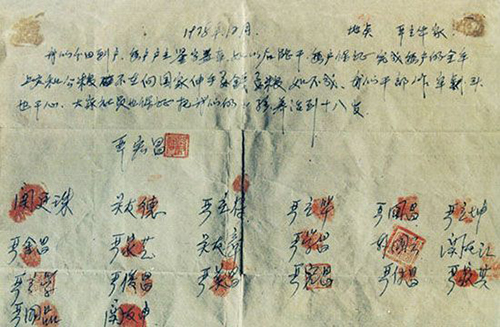 1978年12月 地点 严立华家
我们分田到户,每户户主签字盖章,如以后能干,每户保证完成每户的全年
上交和公粮 不在向国家伸手要钱要粮。如不成,我们干部作牢 头
也干心,大家社员也保证把我们的小孩养活到十八岁。
严宏昌
关 珠 关友德 严立符 严立华 严国昌 严立坤
严金昌 严家芝 关友章 严学昌 韩国云 关友江
严立学 严俊昌 严美昌 严宏昌 严付昌 严家其
严国品 关友申